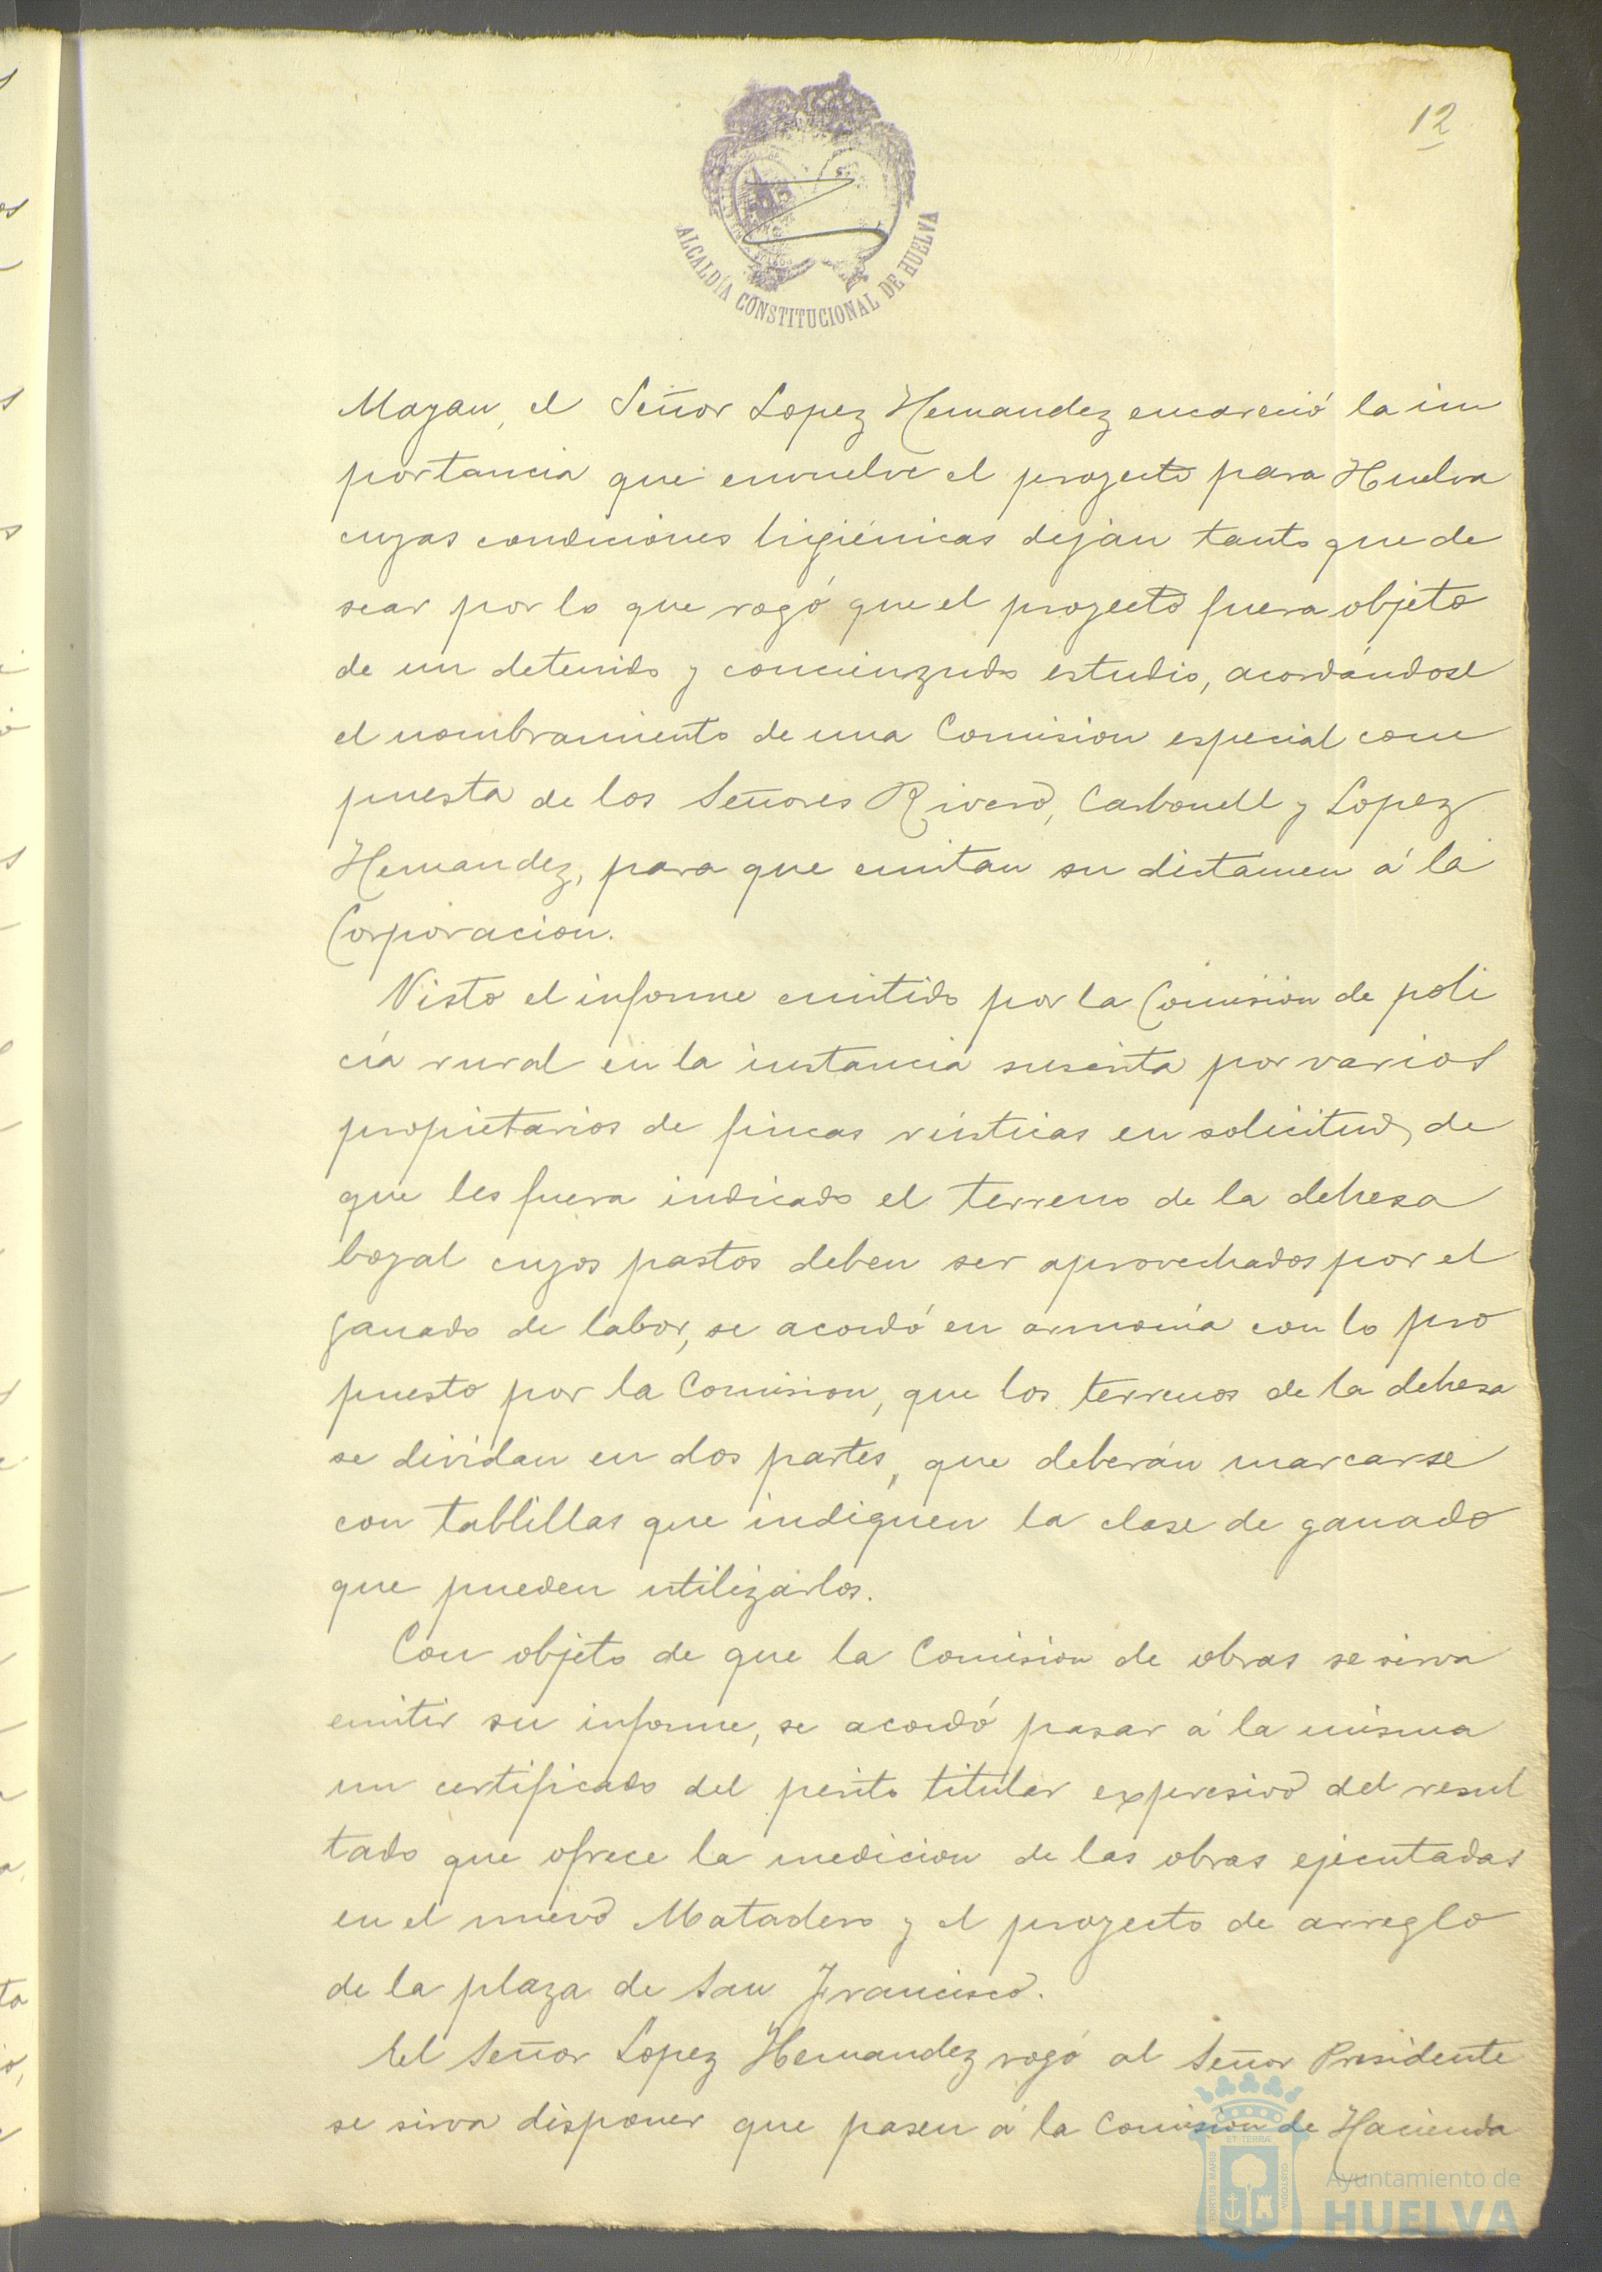 12
ALCALDÍA CONSTITUCIONAL DE HUELVA
Mayan, el Señor Lopez Hernandez encareció la im
portancia que envuelve el proyecto para Huelva
cuyas condiciones higiénicas dejan tanto que de
sear por lo que rogó que el proyecto fuera objeto
de un detenido y concienzudo estudio, acordándose
el nombramiento de una Comision especial com
puesta de los Señores Rivero, Carbonell y Lopez
Hernandez, para que emitan su dictámen á la
Corporacion.
Visto el informe emitido por la Comisión de poli
cía rural en la instancia suscrita por varios
propietarios de fincas rústicas en solicitud, de
que les fuera indicado el terreno de la dehesa
boyal cuyos pastos deben ser aprovechados por el
ganado de labor, se acordó en armonía con lo pro
puesto por la Comision, que los terrenos de la dehesa
se dividan en dos partes, que deberán marcarse
con tablillas que indiquen la clase de ganado
que pueden utilizarlos.
Con objeto de que la Comision de obras se sirva
emitir su informe, se acordó pasar á la misma
un certificado del perito titular expresivo del resul
tado que ofrece la medicion de las obras ejecutadas
en el nuevo Matadero y el proyecto de arreglo
de la plaza de San Francisco.
El Señor Lopez Hernandez rogó al Señor Presidente
se sirva disponer que pasen á la Comision de Hacienda
PORTUS MARIS ET TERRÆ CUSTODIA
Ayuntamiento de
HUELVA